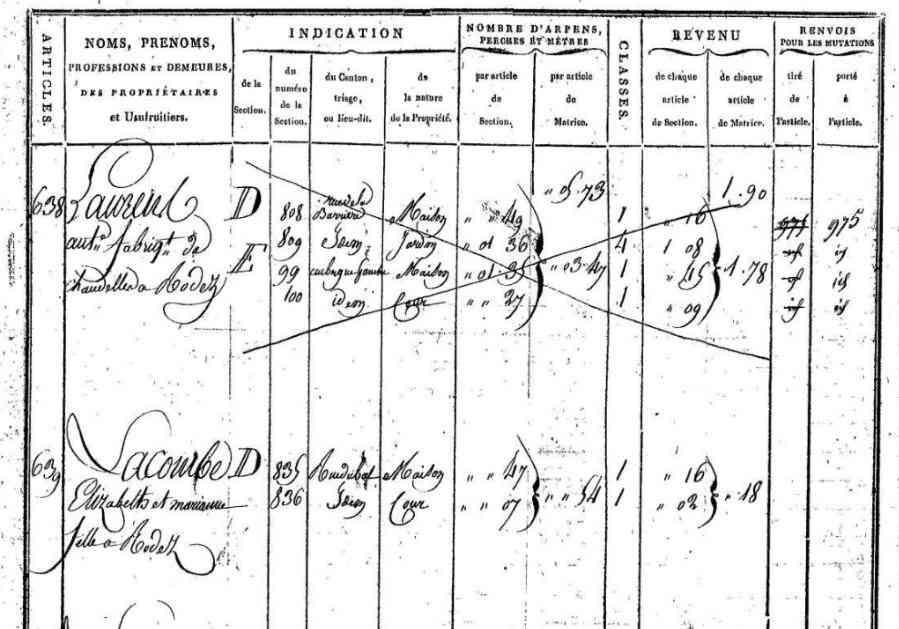 ARTICLES.
NOMS, PRENOMS,
PROFESSIONS ET DEMEURES,
DES PROPRIÉTAIRES
et Usufruitiers.
INDICATION
de la
Section.
du
numéro
de la
Section.
du Canton,
triage,
ou lieu-dit.
de
la nature
de la Propriété.
NOMBRE D'ARPENS,
PERCHES ET MÈTRES
par article
de
Section.
par article
de
Matrice.
CLASSES.
REVENU
de chaque
article
de Section.
de chaque
article
de Matrice.
RENVOIS
POUR LES MUTATIONS
tiré
de
l'article.
porté
à
l'article.
" 05.73 1.90
638 Laurent D 808 Maison " " 49 1 " 16 971 975
fabriqt de 809 Idem Jardin " 01 36 4 1 08 id id
chandelles a Rodez E 99 Maison " 01.35 " 03.47 1 " 45 1.78 id id
100 idem Cour " " 27 1 " 09 id id
639 Lacombe D 835 Maison " " 47 1 " 16
Elizabeth et marianne 836 Idem Cour " " 07 " " 54 1 " 02 " 18
fille a Rodez